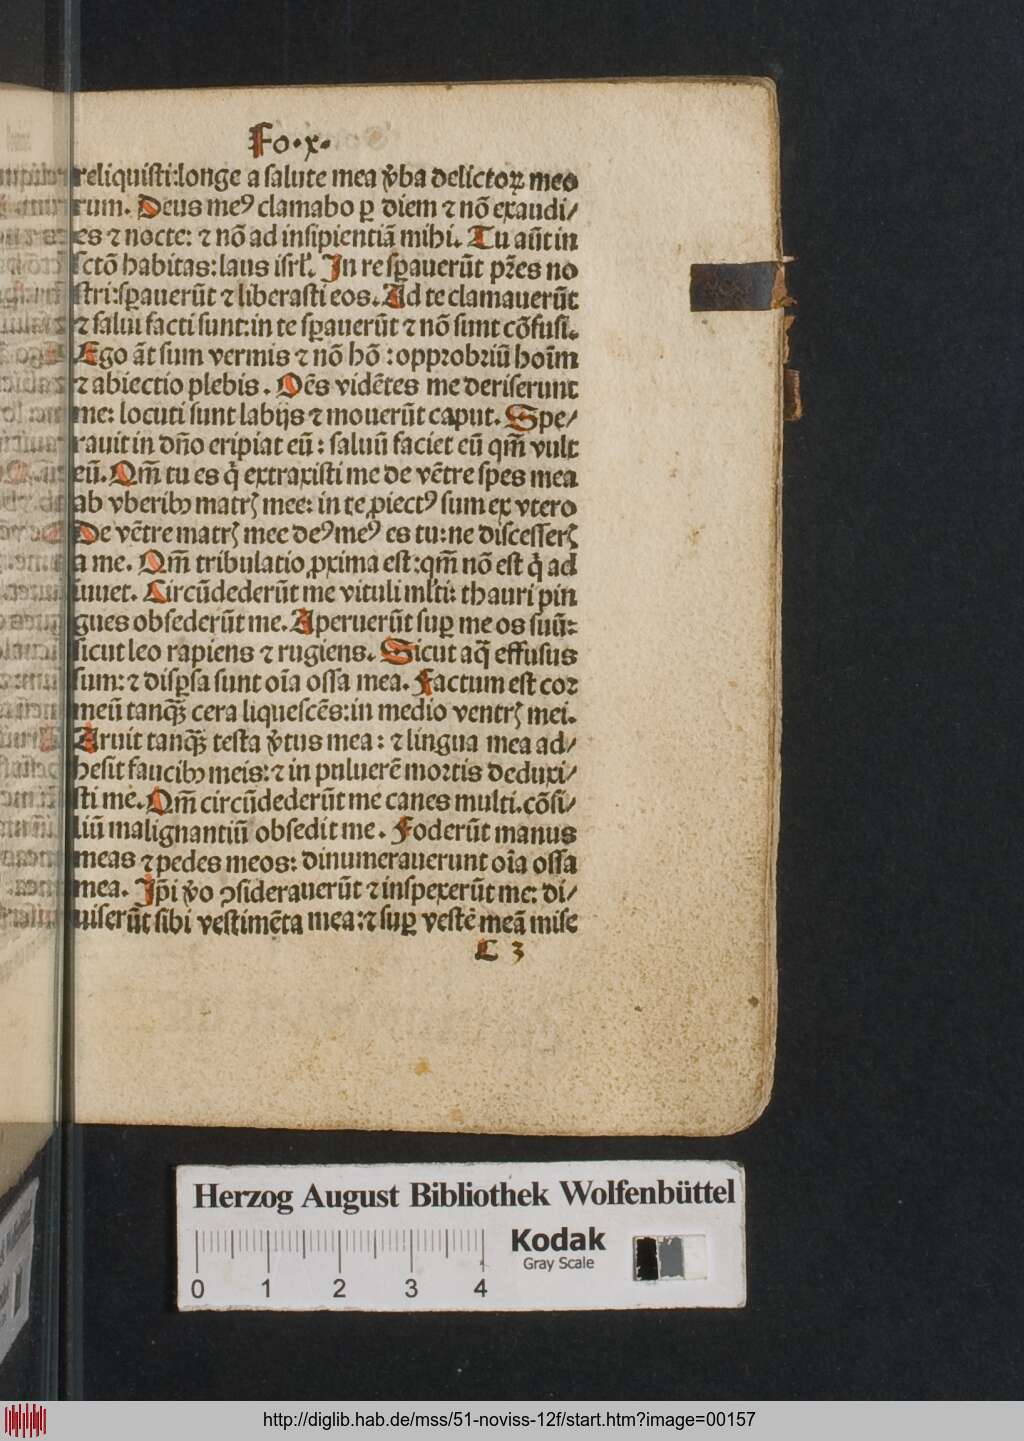 Fo.x.
reliquisti:longe a salute mea v̓ba delictoꝝ meo
rum. Deus meꝰ clamabo ꝑ diem ⁊ nō exaudi/
es ⁊ nocte: ⁊ nō ad insipientiā mihi. Tu aūt in
sctō habitas:laus isrl̓. In re sꝑauerūt pr̄es no
stri:sꝑauerūt ⁊ liberasti eos. Ad te clamauerūt
⁊ salui facti sunt:in te sꝑauerūt ⁊ nō sunt cōfusi.
Ego āt sum vermis ⁊ nō hō : opprobriū hoīm
⁊ abiectio plebis. Oēs vidētes me deriserunt
me: locuti sunt labijs ⁊ mouerūt caput. Spe/
rauit in dn̄o eripiat eū: saluū faciet eū qm̄ vult
eū. Qm̄ tu es q̓ extraxisti me de vētre spes mea
ab vberibꝫ matrꝭ mee: in te ꝓiectꝰ sum ex vtero
De vētre matrꝭ mee deꝰ meꝰ es tu: ne discesserꝭ
a me. Qm̄ tribulatio ꝓxima est:qm̄ nō est q̓ ad
iuuet. Circūdederūt me vituli ml̓ti: thauri pin
gues obsederūt me. Aperuerūt suꝑ me os suū:
sicut leo rapiens ⁊ rugiens. Sicut aq̄ effusus
sum: ⁊ disꝑsa sunt oīa ossa mea. Factum est cor
meū tanqꝫ cera liquescēs:in medio ventrꝭ mei.
Aruit tanqꝫ testa v̓tus mea: ⁊ lingua mea ad/
hesit faucibꝫ meis: ⁊ in puluerē mortis deduxi/
sti me. Qm̄ circūdederūt me canes multi.cōsi/
liū malignantiū obsedit me. Foderūt manus
meas ⁊ pedes meos: dinumerauerunt oīa ossa
mea. Ip̄i v̓o ꝯsiderauerūt ⁊ inspexerūt me: di/
uiserūt sibi vestimēta mea: ⁊ suꝑ vestē meā mise
C 3
Herzog August Bibliothek Wolfenbüttel
Kodak
Gray Scale
0 1 2 3 4
http://diglib.hab.de/mss/51-noviss-12f/start.htm?image=00157